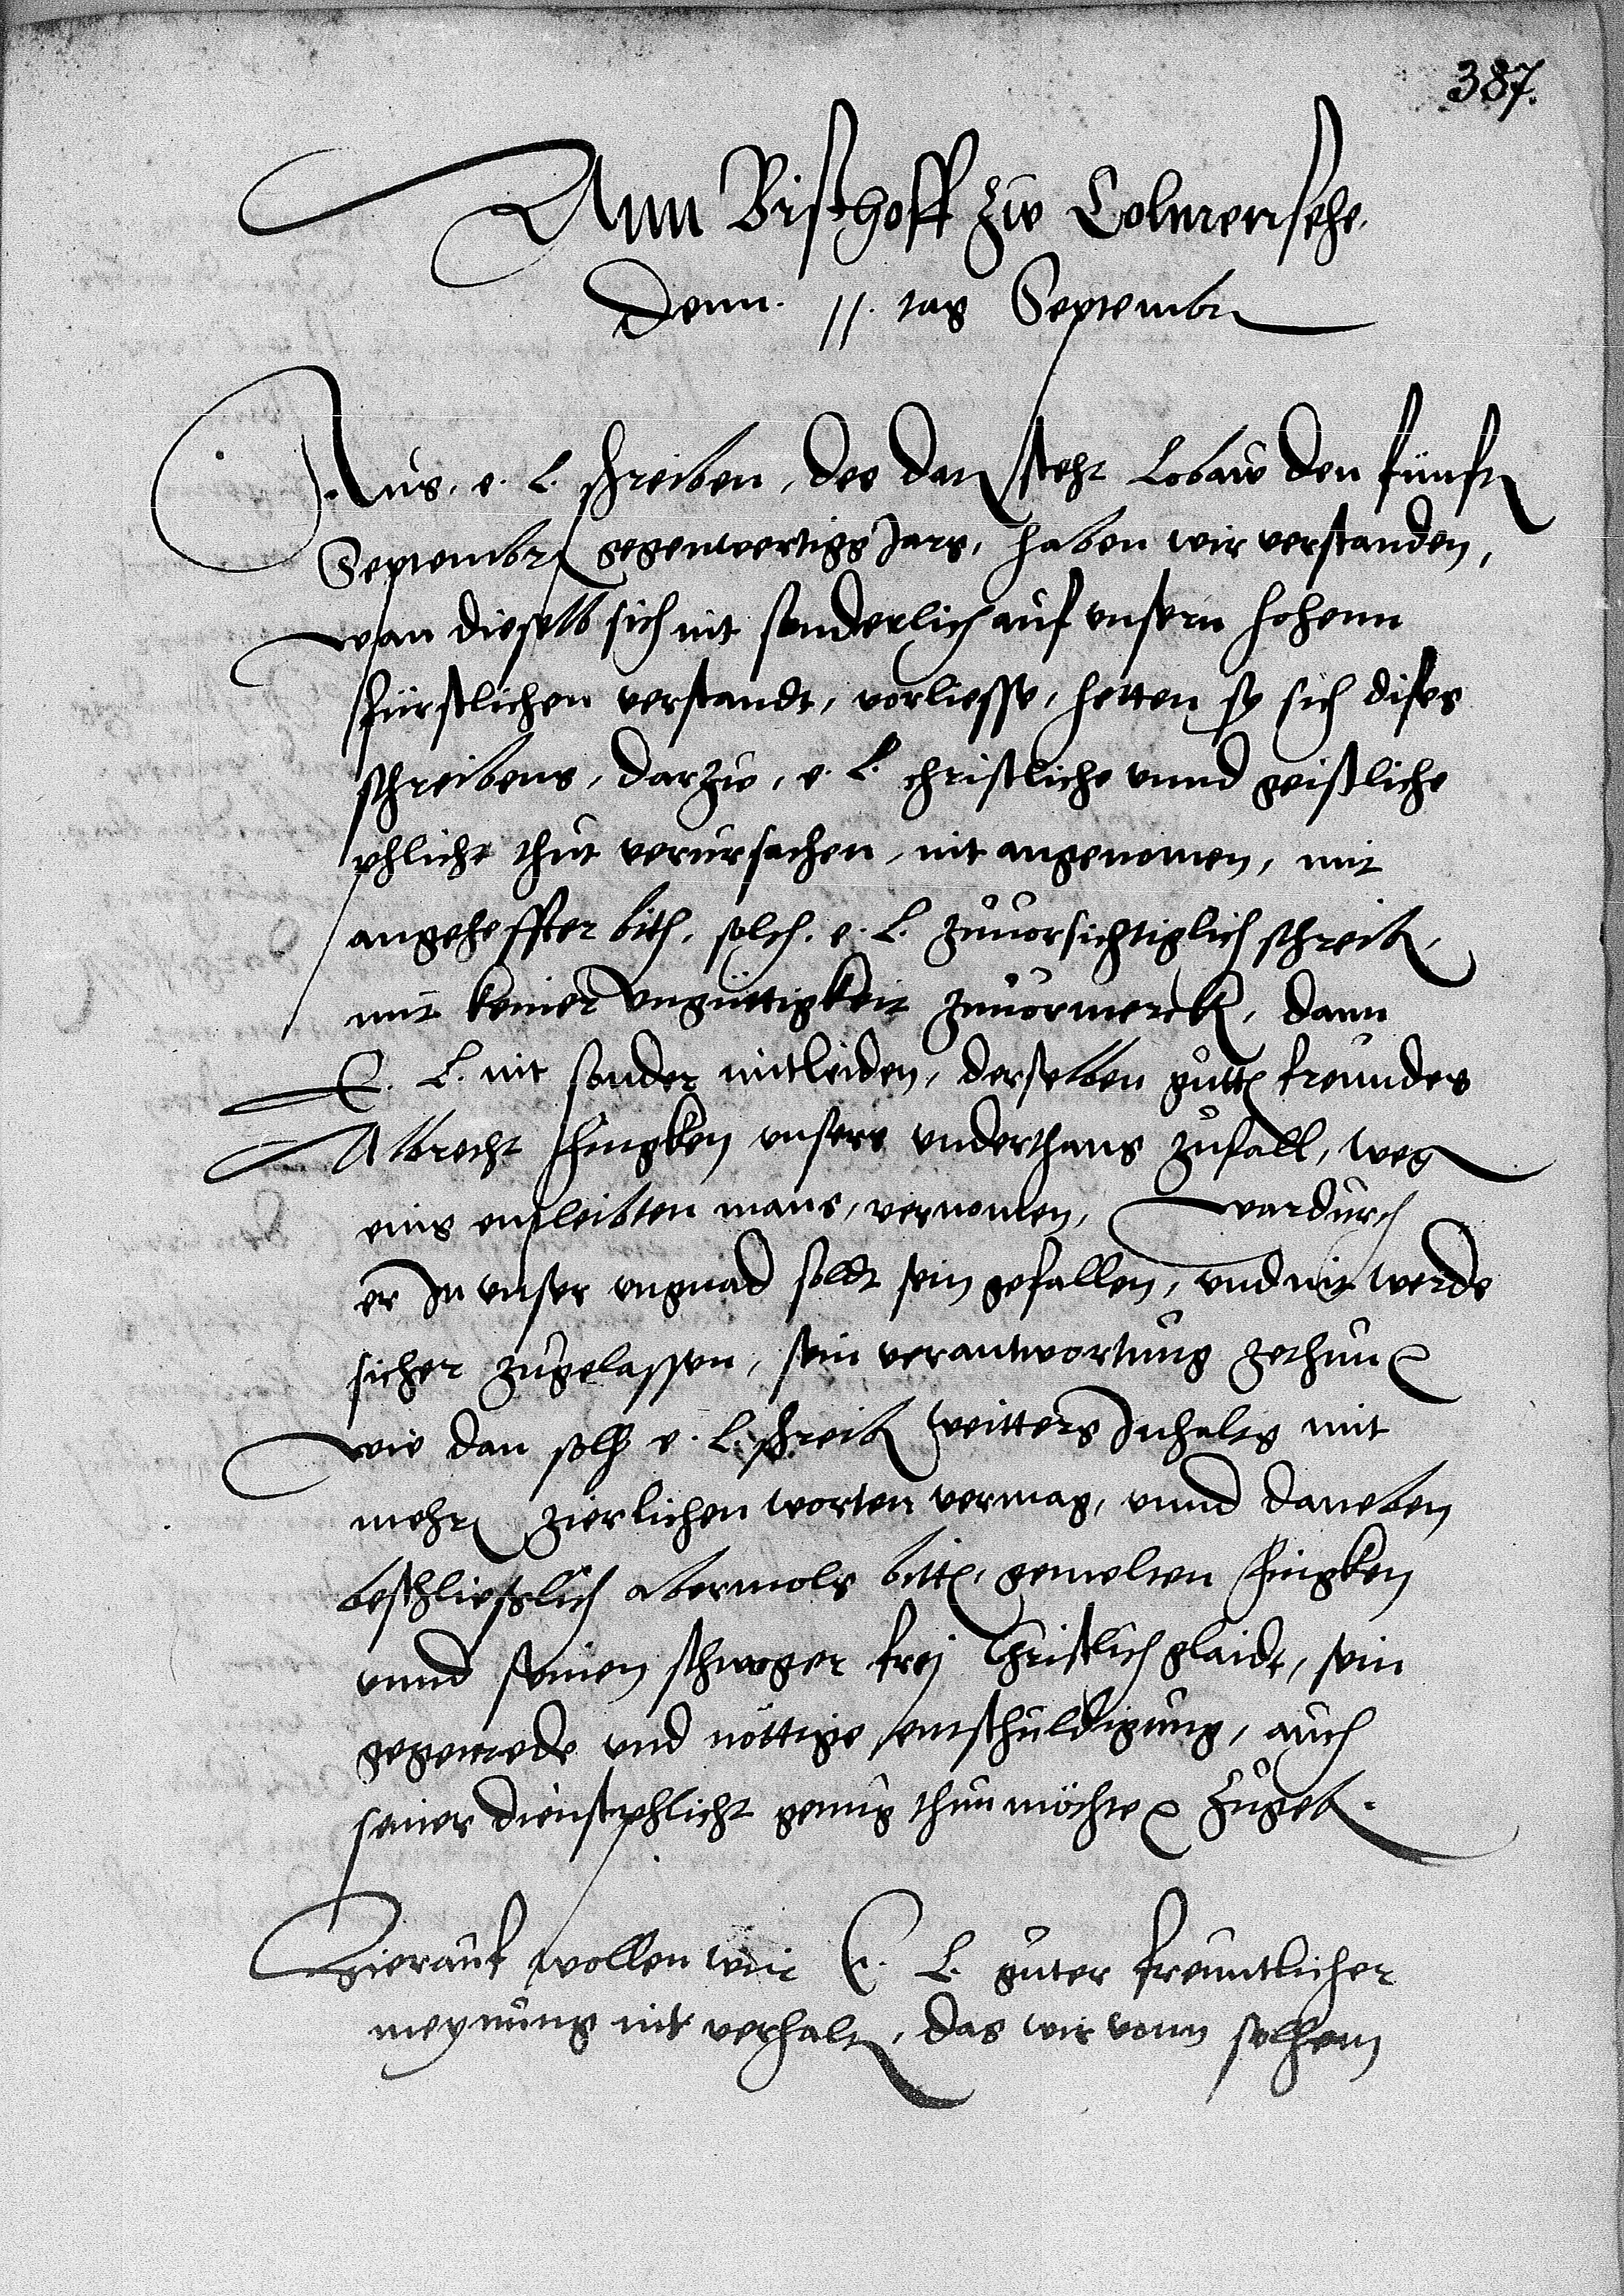 387.
Ann Bischoff zw Colmensehe.
Denn. 11. tag Septembr
Aus. e. l. schreiben, des dat steht Lobaw den fünft
Septembr gegenwertigs Jars, haben wir verstanden,
wan dieselb sich nit sonderlich auf unsern hohenn
fürstlichen verstandt, vorliesse, hetten sy sich dises
schreibens, darzw, e. l. christliche unnd geistliche
phlicht thut verursachen, nit angenomen, mit
angeheffter bith, solch. e. l. zuuorsichtiglich schreib,
mit keiner ungüttigkeit zuuormerck, dann
E. l. nit sonder mitleiden, derselben gutt freundes
Albrecht Fingken unsers underthans zufall, weg
eins entleibten mans, vernomen, wardurch
er In unser ungnad soldt sein gefallen, und nit werde
sicher zugelassen, sein verantwortung zethun
wie dan solh e. l. schreib weitters Inhalts mit
mehr zierlichen worten vermag, unnd daneben
beschlieslich abermols bitt, gemelten Fingken
unnd seinen schwoger frej Christlich glaidt, sein
gegenrede und nöttige entschuldigung, auch
seiner dienstphlicht genug thun möchte zugeb.
Hierauf wollen wir E. L. guter freuntlicher
meynung nit verhalt, das wir vonn solhem